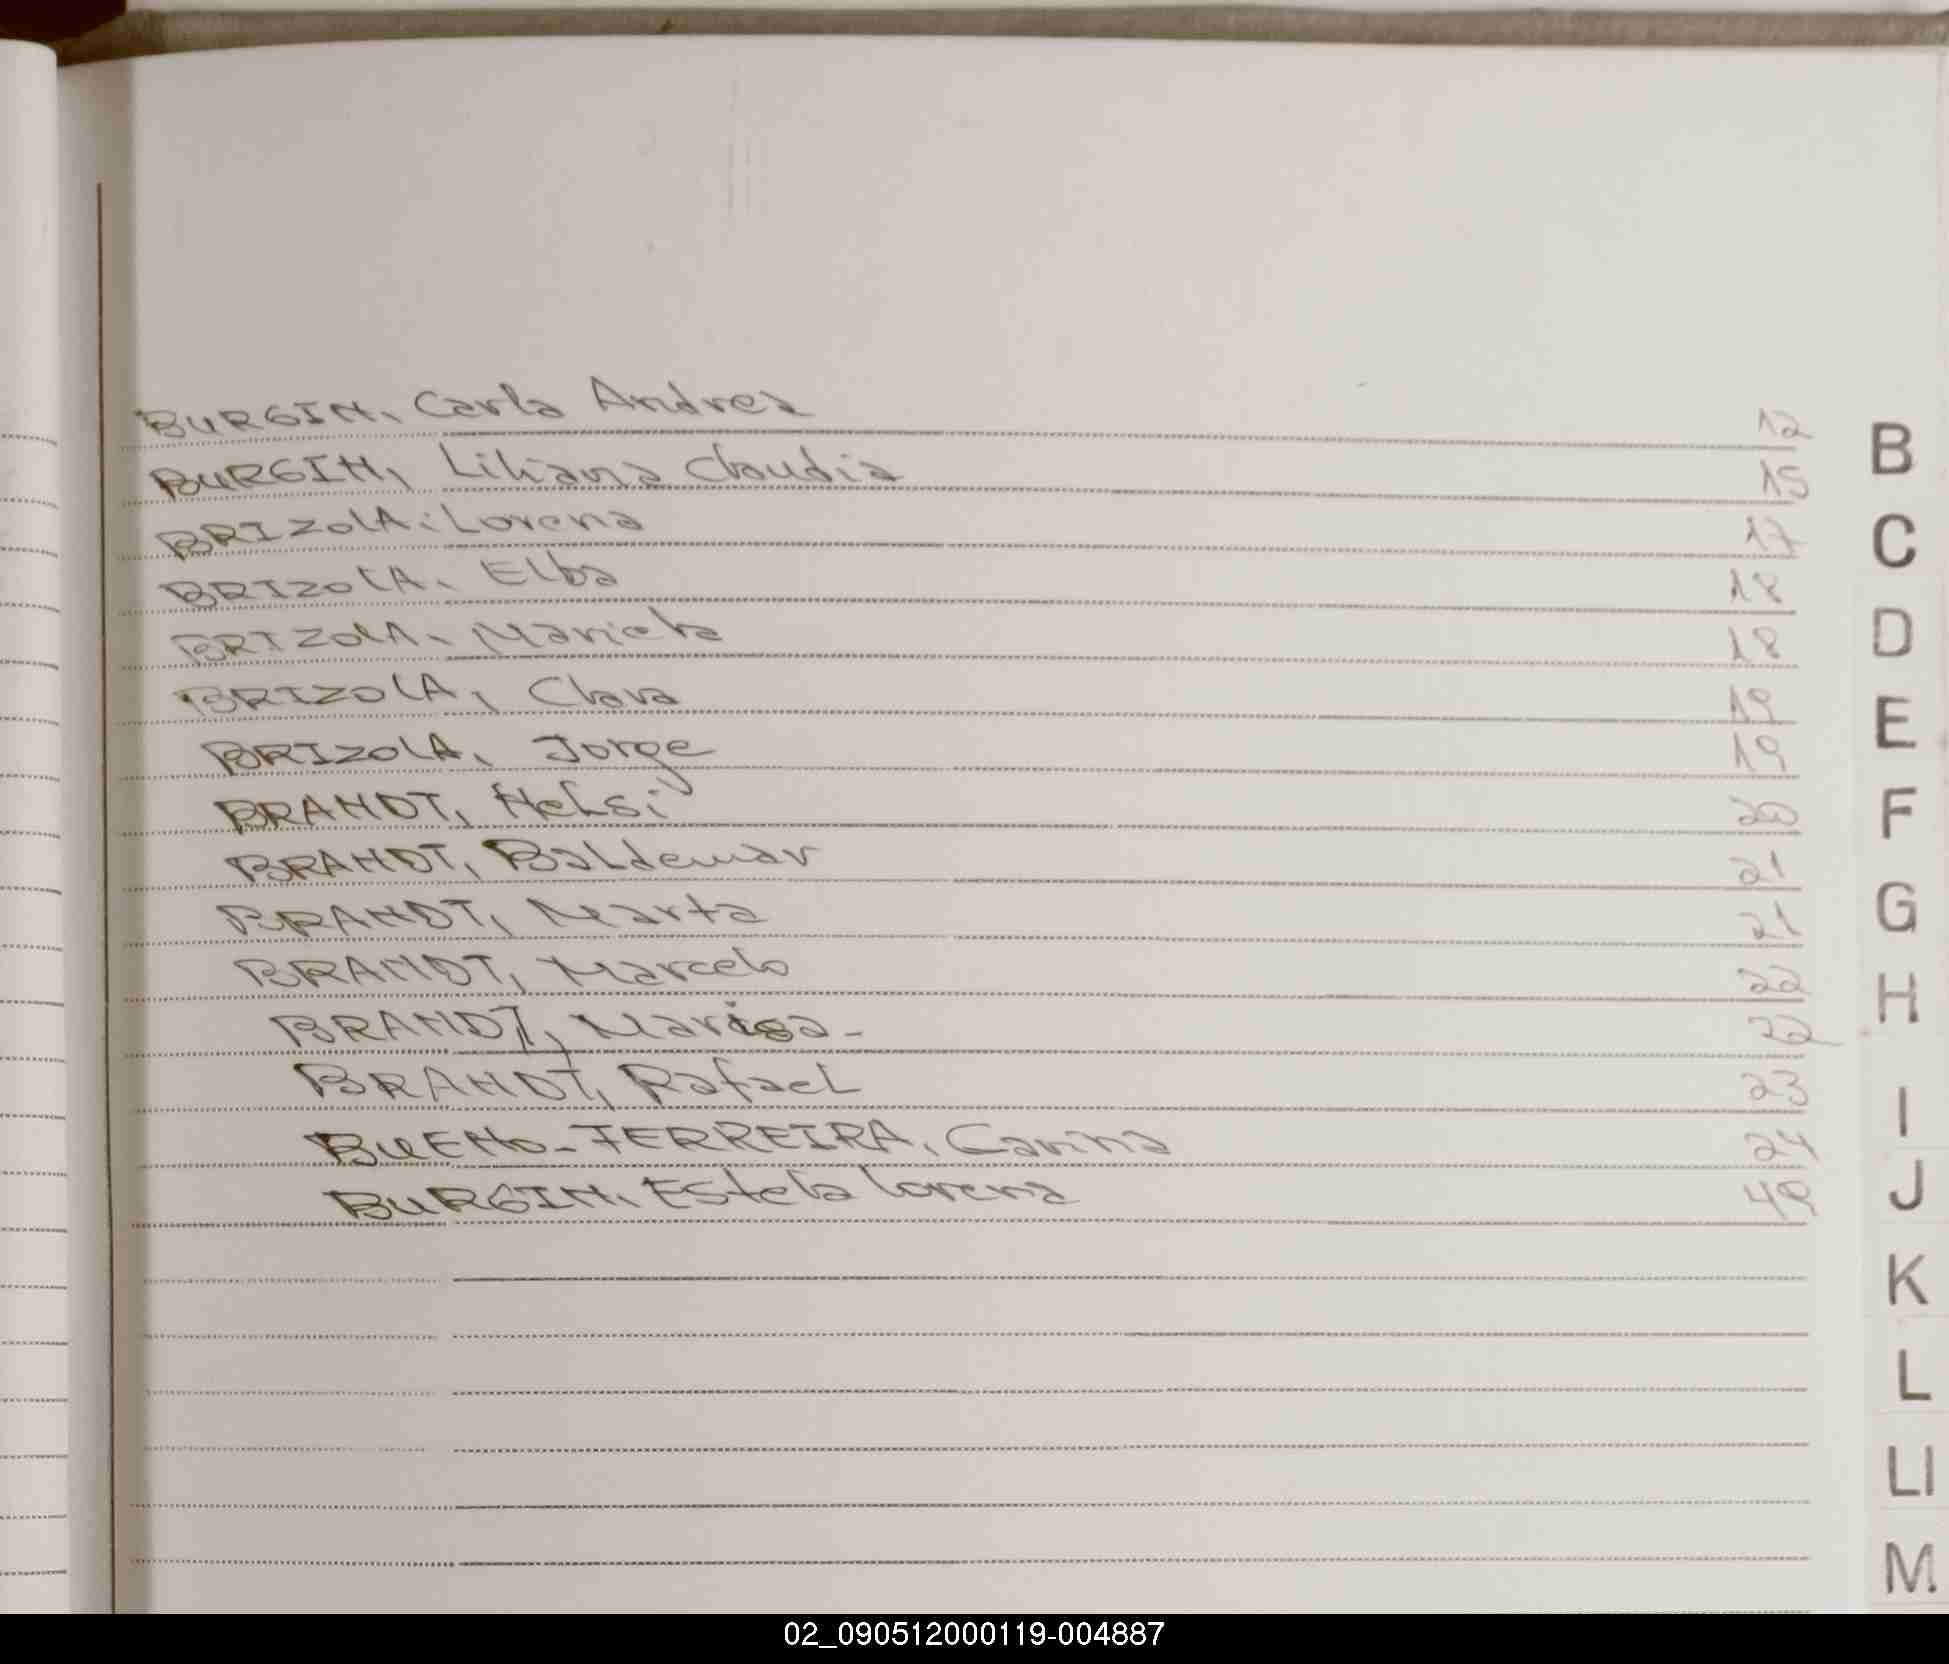 BURGIN, Carla Andrea 12
BURGIN, Liliana Claudia 15
BRIZOLA: Lorena 17
BRIZOLA, Elba 18
BRIZOLA, Marieta 18
BRIZOLA, Clara 19
BRIZOLA, Jorge 19
BRANDT, Helsi 20
BRANDT, Baldemar 21
BRANDT, Marta 21
BRANDT, Marcelo 22
BRANDT, Marisa- 22
BRANDT, Rafael 23
BUENO-FERREIRA, Carina 24
BURGIN, Estela Lorena
B
C
D
E
F
G
H
I
J
K
L
Ll
M
02_090512000119-004887